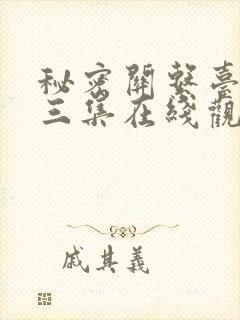 秘密關繫臺
三集在綫觀
戚其義